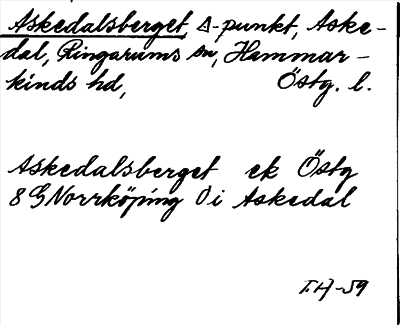 Askedalsberget Δ-punkt, Aske-
dal, Ringarums sn, Hammar-
kinds hd, Östg. l.
Askedalsberget ek Östg
8 G Norrköping O i Askedal
T.H-59